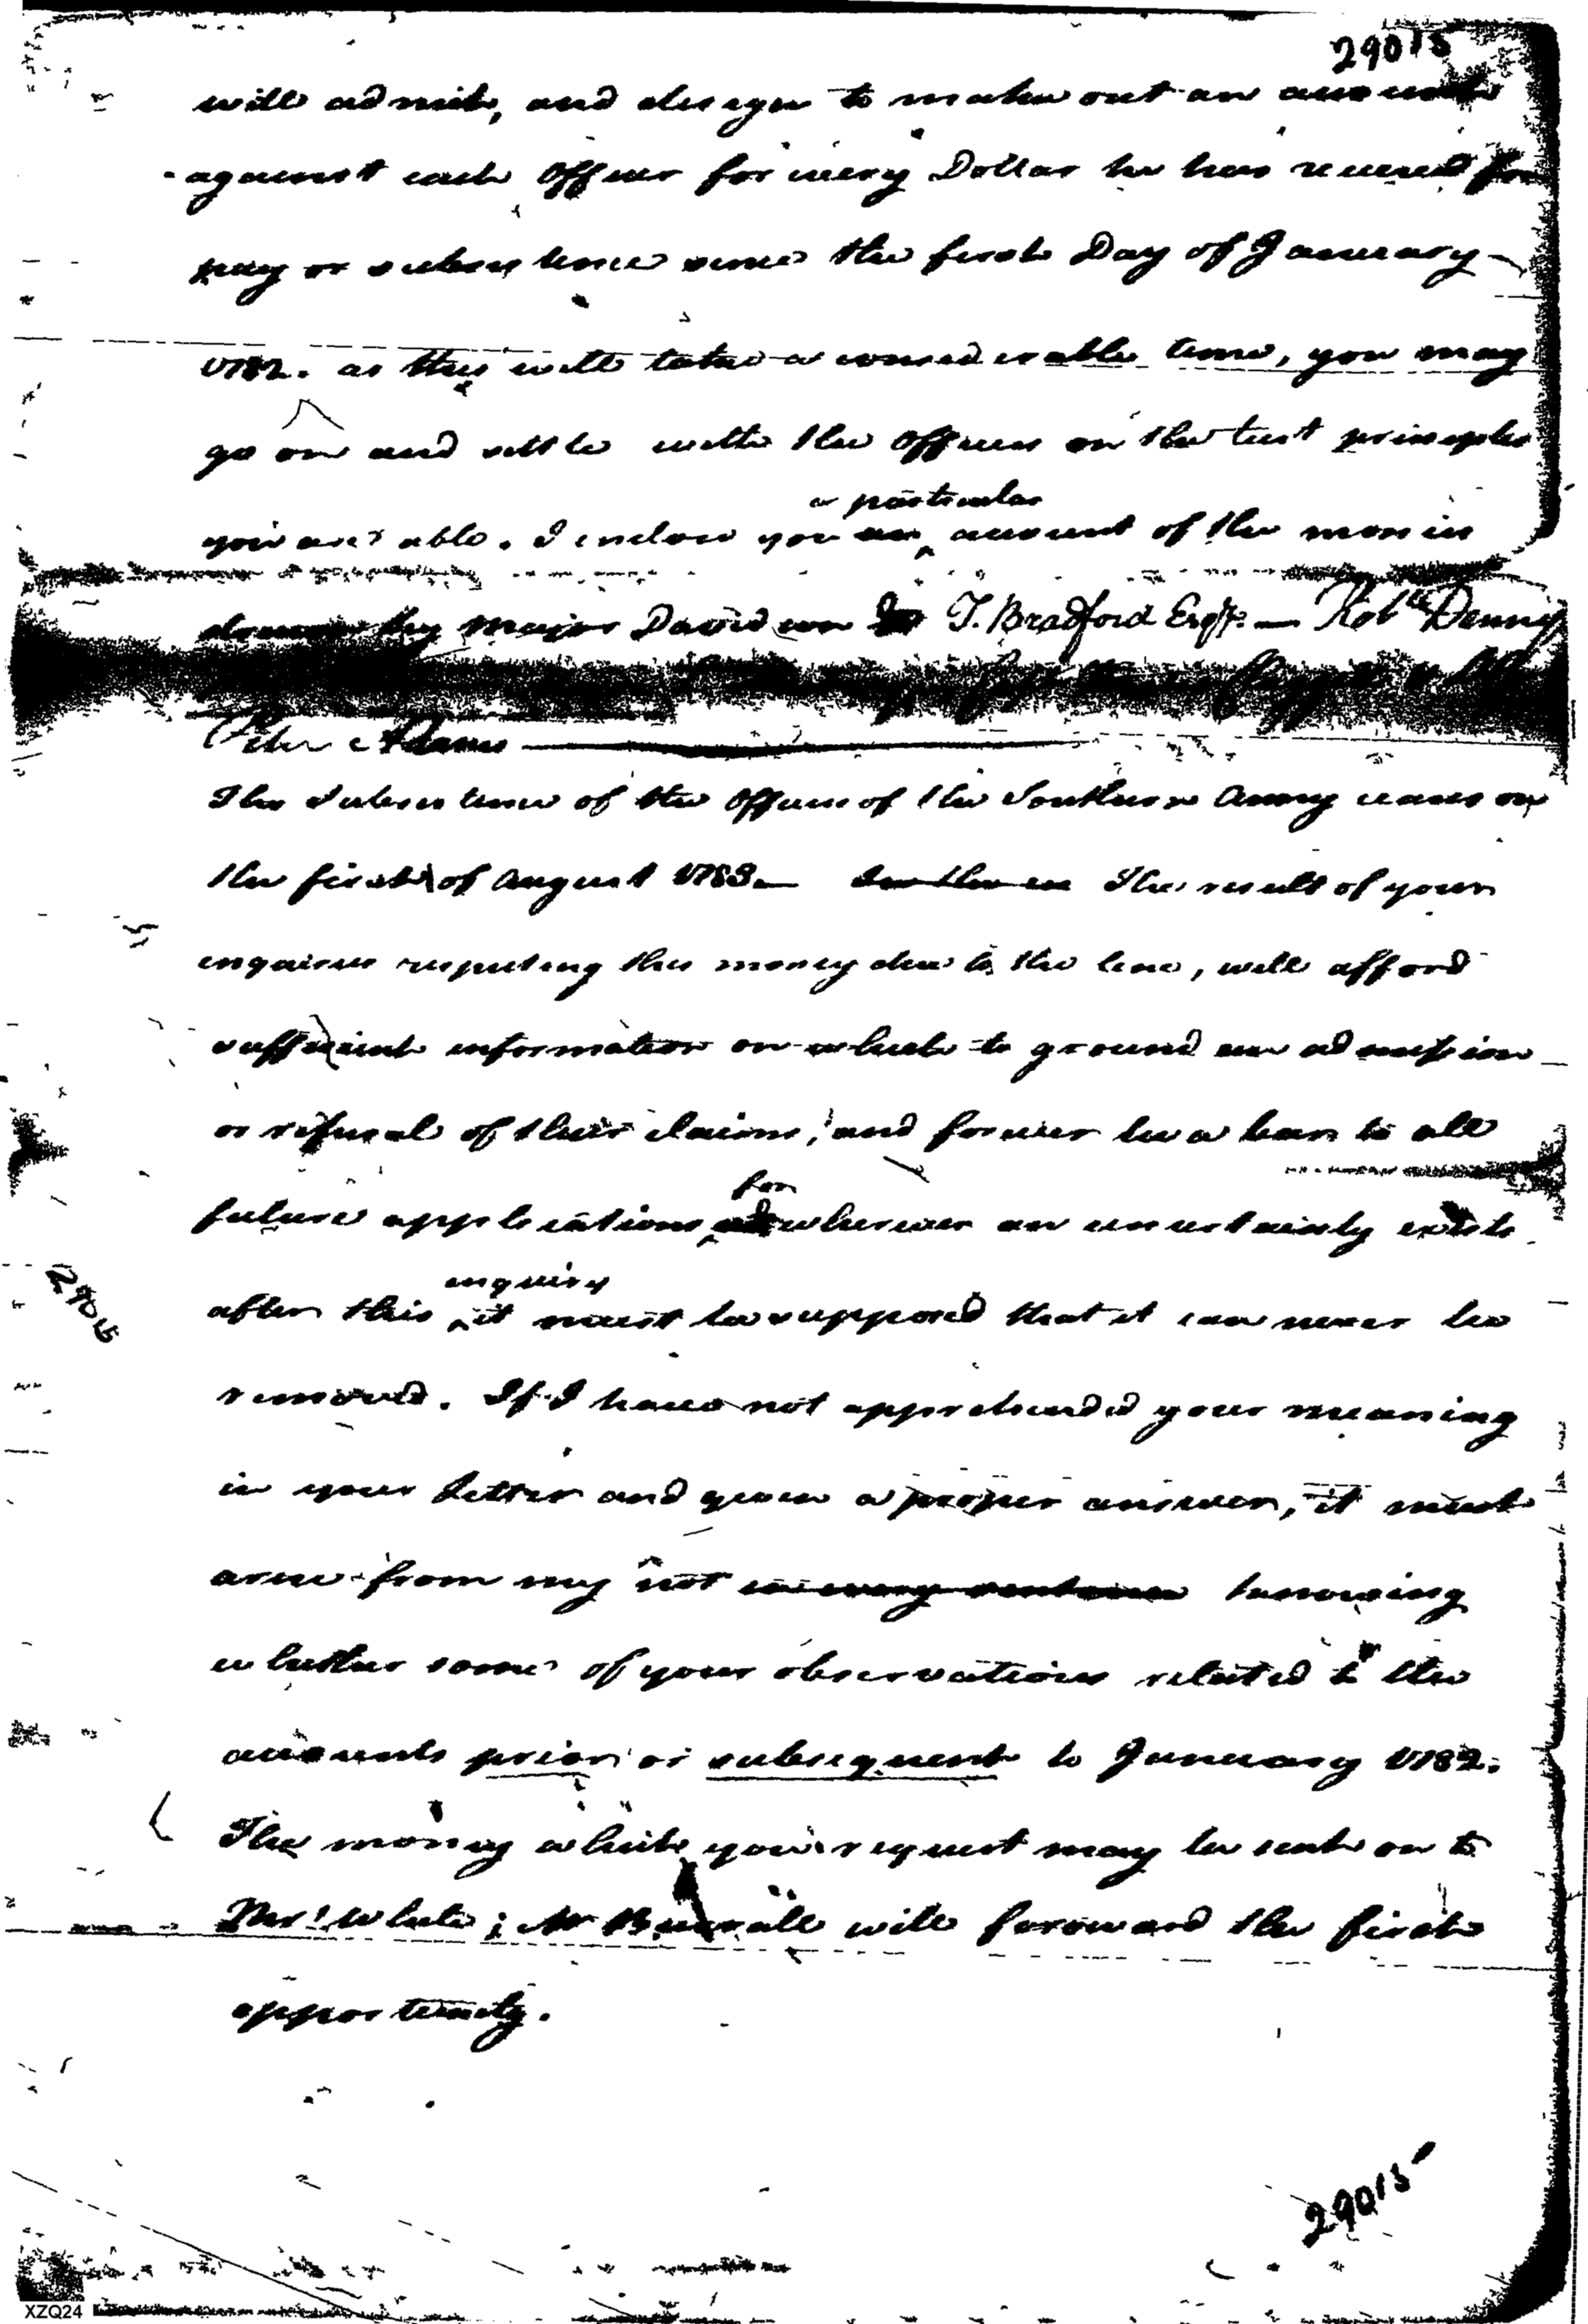 29015
will admit, and design to make out an account
against each Officer for every Dollar he has received for
pay or subsistence since the first Day of January
1782. as this will take a considerable time, you may
go on and settle with the Officers on the best principles
a particular
you are able. I enclose you an account of the monies
drawn by Major Davidson T. Bradford Esqr. — Robt Denny
Peter Adams
The Subsistence of the Officers of the Southern Army ceases on
the first of August 1783. — The result of your
enquiries respecting the money due to the line, will afford
sufficient information on which to ground an admission
or refusal of their claims, and forever be a bar to all
for
future applications wherever an uncertainty exists
enquiry
after this it must be supposed that it can never be
29015
removed. If I have not apprehended your meaning
in your letter and given a proper answer, it must
arise from my not in every sentence knowing
whether some of your observations related to the
accounts prior or subsequent to January 1782.
The money which you request may be sent on to
Mr. White; Mr Burrall will forward the first
opportunity.
29015
XZQ24